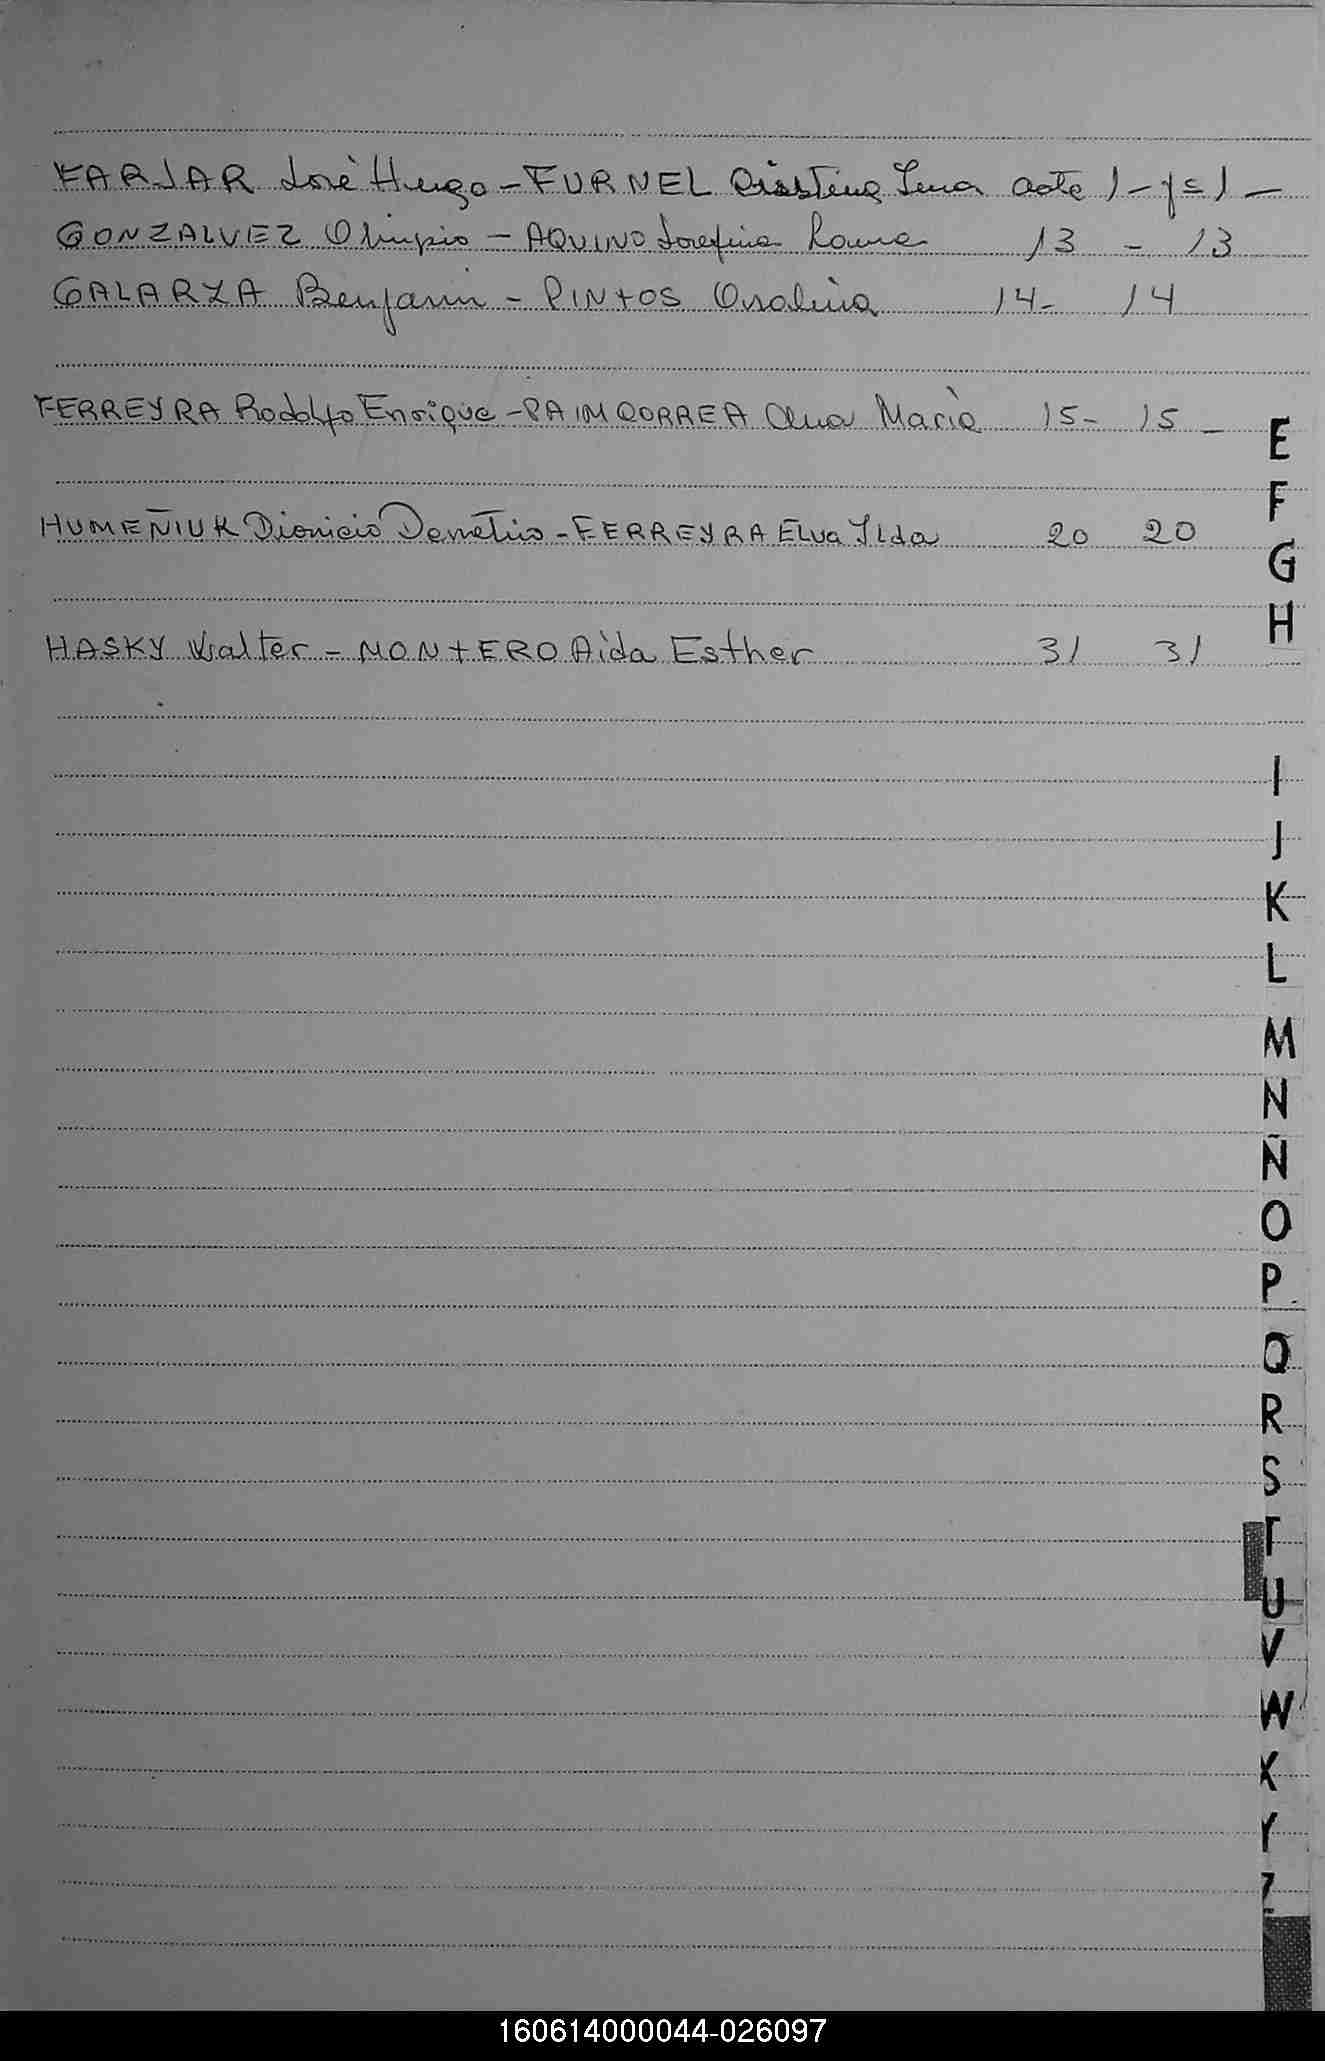 FARJAR José Hugo - FURNEL Cristina acta 1 - fs 1 -
GONZALVEZ Olimpio - AQUINO Josefina 13 - 13
GALARZA Benjamin - PINTOS 14 - 14
FERREYRA Rodolfo Enrique - PAIM CORREA Ana Maria 15 - 15 -
HUMEÑIUK Dionicio Demetrio - FERREYRA Elva Ilda 20 20
HASKY Walter - MONTERO Aida Esther 31 31
E
F
G
H
I
J
K
L
M
N
Ñ
O
P
Q
R
S
T
U
V
W
X
Y
Z
160614000044-026097